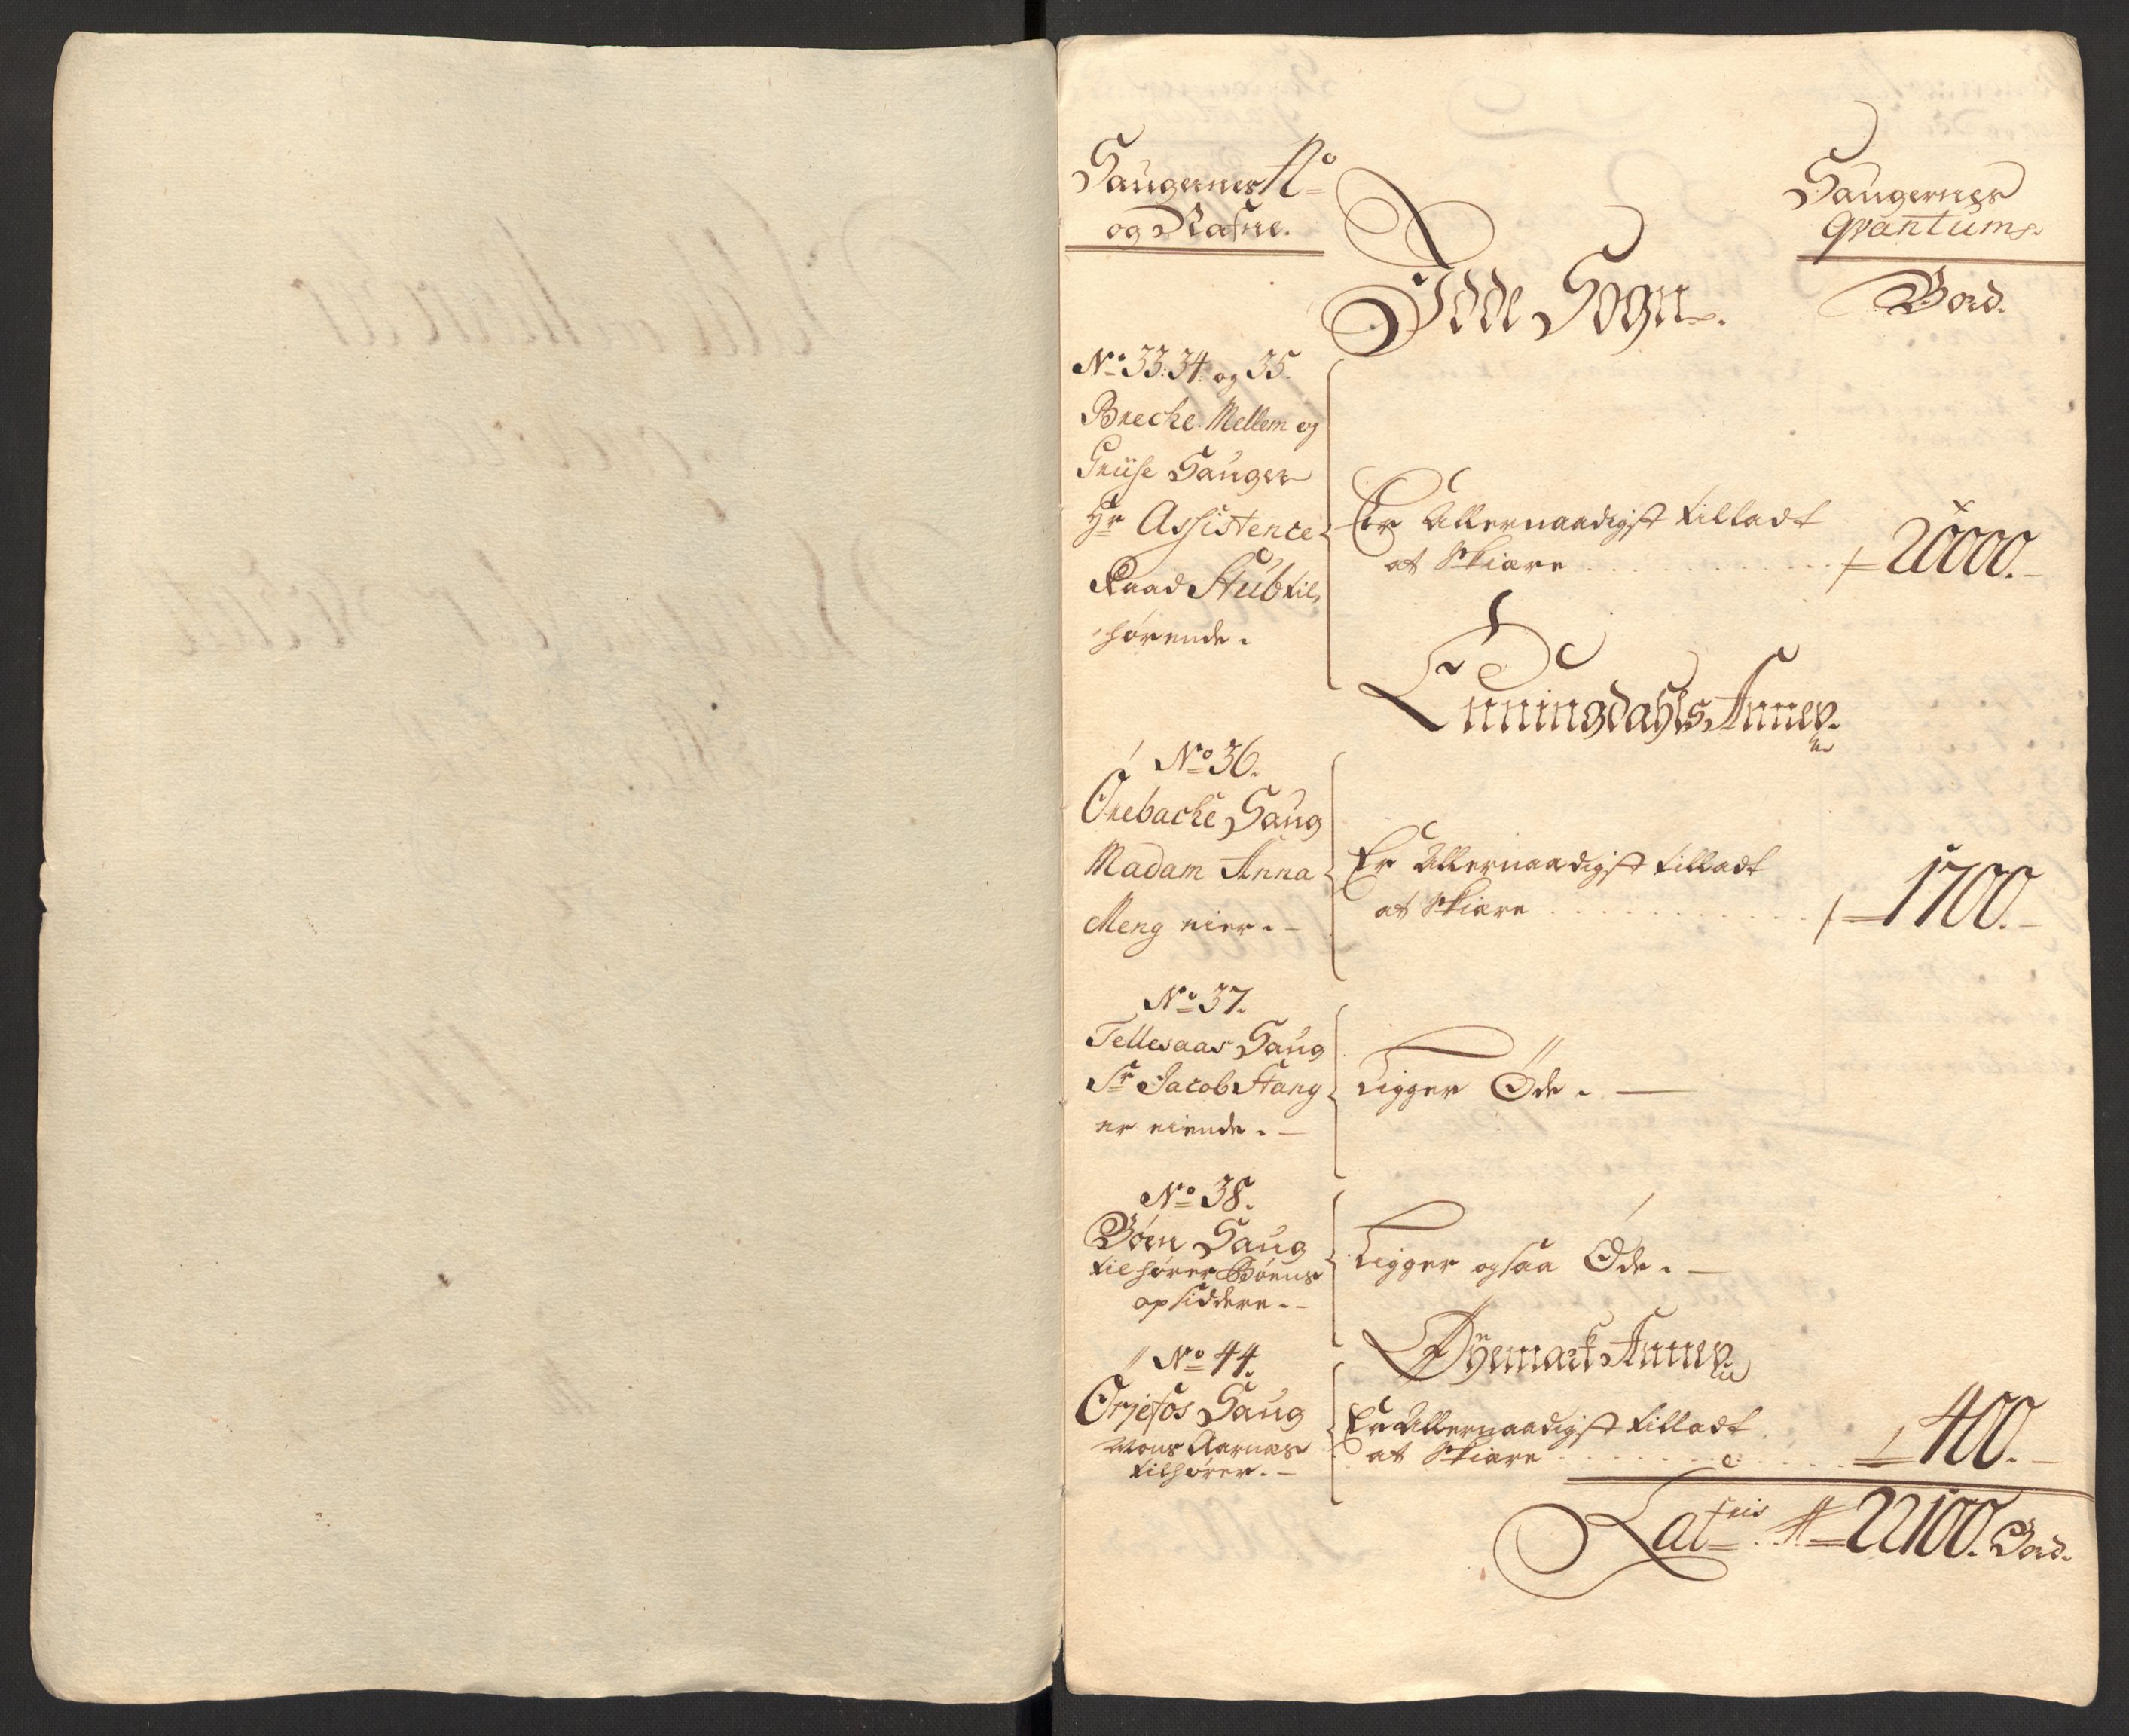 Saugernes No
og Nafne.
Saugernes
qvantum.
Idde Sogn.
Bord.
No 33. 34. og 35.
Breche. Mellem og
Gruse Sauger
Hr Assistence
Raad Stub til,
hørende.
Er Allernaadigst tilladt
at Skiære . . . . . . . . . . . 20000.-
Enningdahls Annex.
No 36.
Orebache Saug
Madam Anna
Meng eier. -
Er Allernaadigst tilladt
at Skiære . . . . . . . . . . . 1700.-
No 37.
Tellesaas Saug
Sr Jacob Stang
er eiende. -
Ligger Øde. -
No 38.
Bøen Saug
tilhører Bøens
opsiddere. -
Ligger ogsaa Øde. -
Øyemark Annex.
No 44.
Ørjefos Saug
Mons Aarnæs
tilhører. -
Er Allernaadigst tilladt
at Skiære . . . . . . . . . . . 400.-
Lateris 22100. Bord.